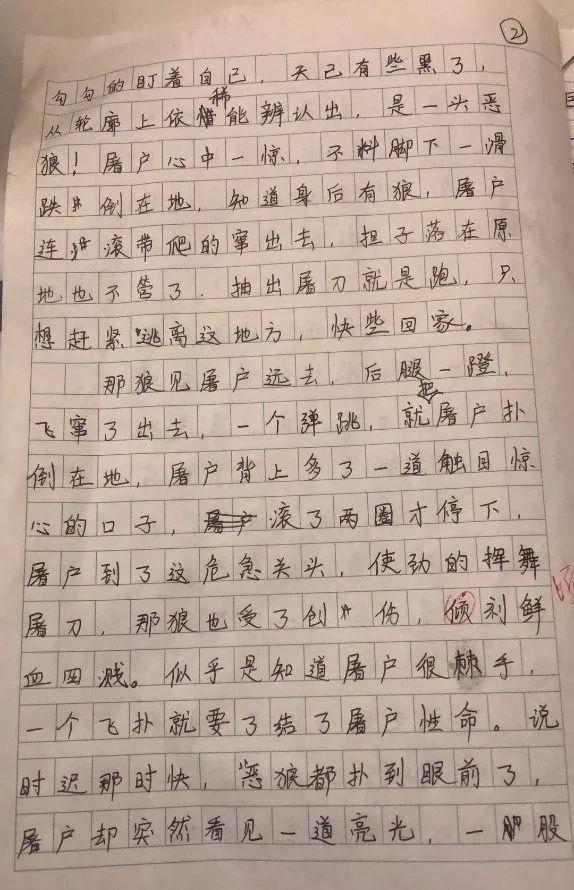 2
勾勾的盯着自己，天已有些黑了，
从轮廓上依稀能辨认出，是一头恶
狼！屠户心中一惊，不料脚下一滑
跌倒在地，知道身后有狼，屠户
连滚带爬的窜出去，担子落在原
地也不管了．抽出屠刀就是跑，只
想赶紧逃离这地方，快些回家。
那狼见屠户远去，后腿一蹬，
飞窜了出去，一个弹跳，就把屠户扑
倒在地，屠户背上多了一道触目惊
心的口子，滚了两圈才停下，
屠户到了这危急关头，使劲的挥舞
屠刀，那狼也受了创伤，倾刹鲜
血四溅。似乎是知道屠户很棘手，
一个飞扑就要了结了屠户性命。说
时迟那时快，恶狼都扑到眼前了，
屠户却突然看见一道亮光，一股